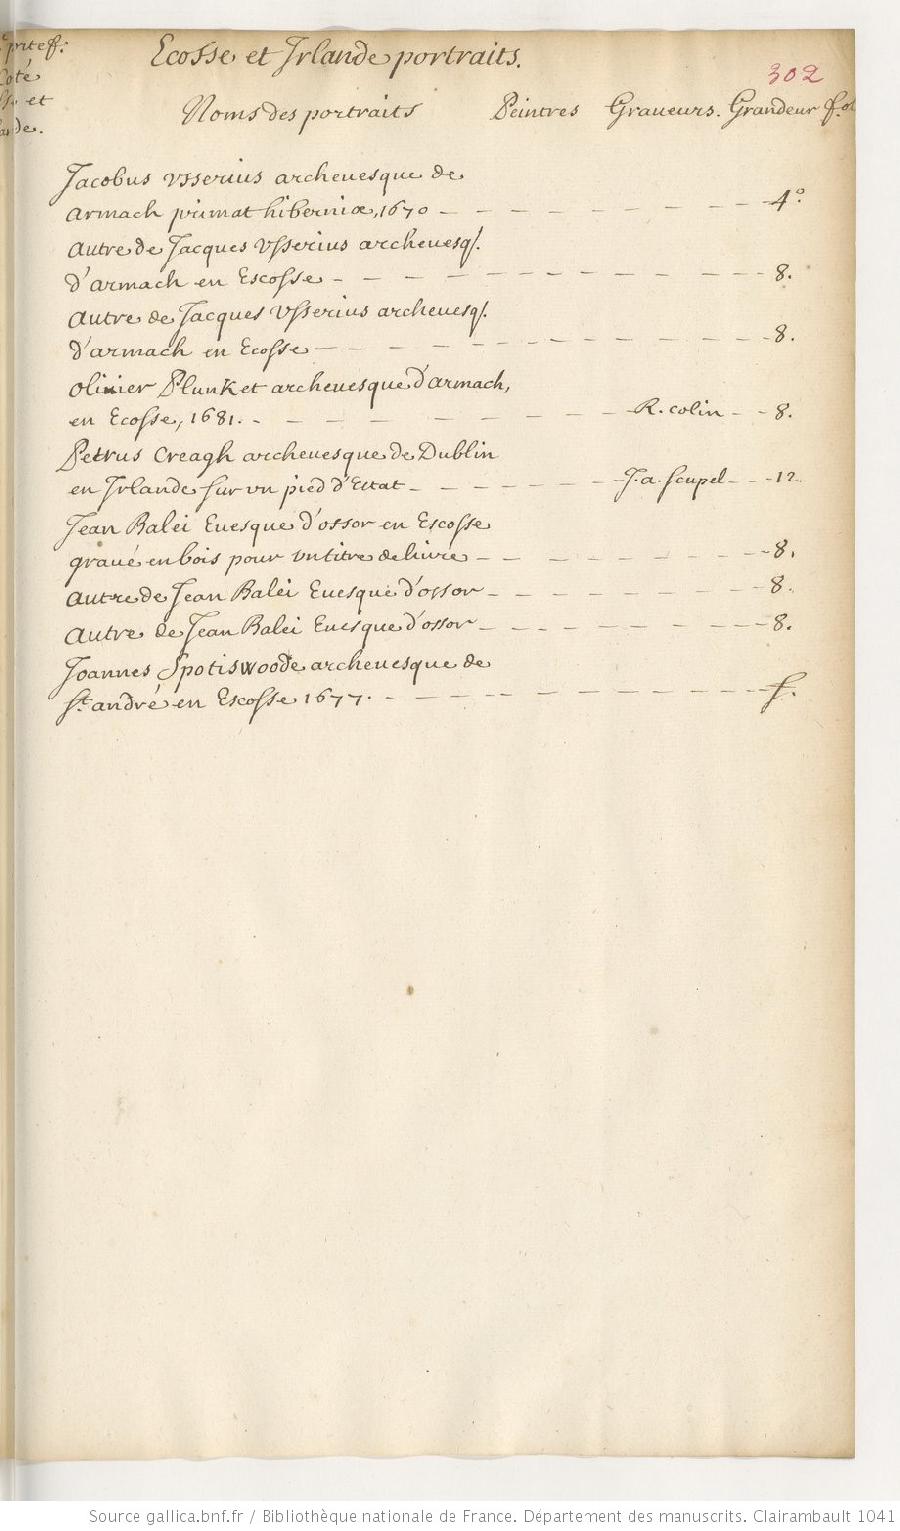 Ecosse et Jrlande portraits.
302
Noms des portraits Peintres Graueurs. Grandeur fol
Jacobus vsserius archeuesque de
armach primat hiberniæ, 1670 — — — — — — — — 4°.
autre de Jacques Vsserius archeuesq/.
d'armach en Escosse — — — — — — — — 8.
autre de Jacques Vsserius archeuesq/.
d'armach en Ecosse — — — — — — — — 8.
oliuier Plunket archeuesque d'armach,
en Ecosse, 1681. — — — — — — R. colin — — 8.
Petrus Creagh archeuesque de Dublin
en Jrlande sur vn pied d'Estat — — — — — J. a. seupel — — 12.
Jean Balei Euesque d'ossor en Escosse
graué en bois pour vn titre de liure — — — — — — 8.
autre de Jean Balei Euesque d'ossor — — — — — — 8.
autre de Jean Balei Euesque d'ossor — — — — — — 8.
Joannes Spotiswoode archeuesque de
st. andré en Escosse 1677. — — — — — — — — f.
Source gallica.bnf.fr / Bibliothèque nationale de France. Département des manuscrits. Clairambault 1041